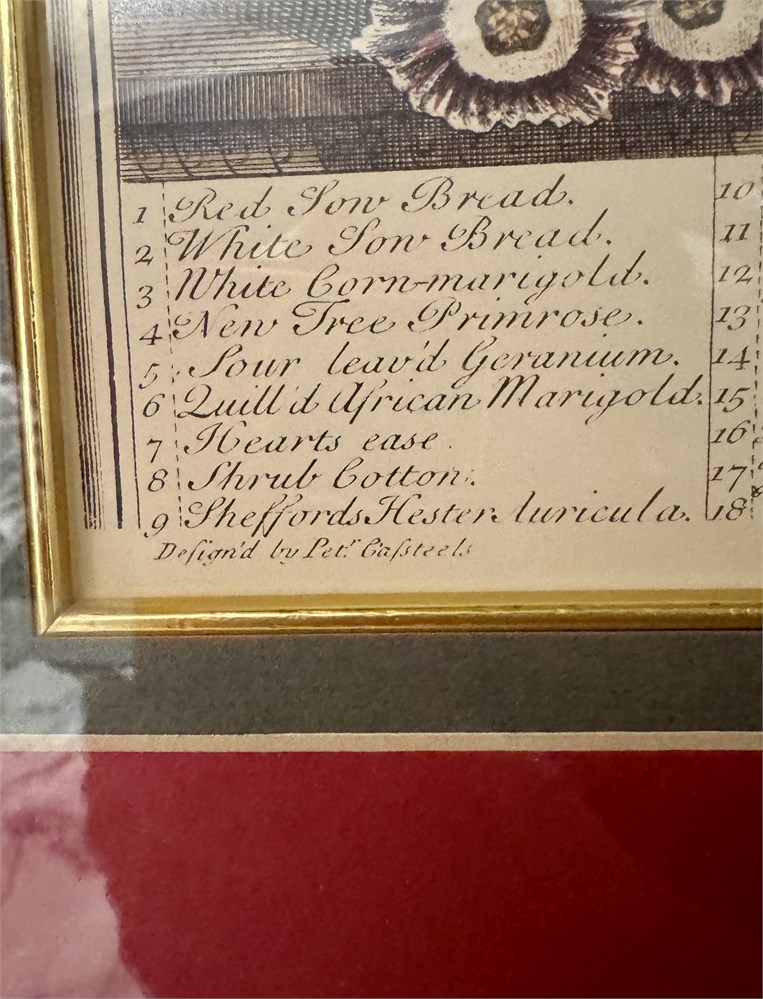 1 Red Sow Bread. 10
2 White Sow Bread. 11
3 White Corn-marigold. 12
4 New Tree Primrose. 13
5 Sour leav'd Geranium. 14
6 Quill'd African Marigold. 15
7 Hearts ease. 16
8 Shrub Cotton. 17
9 Sheffords Hester Auricula. 18
Deſign'd by Pet.r Caſsteels